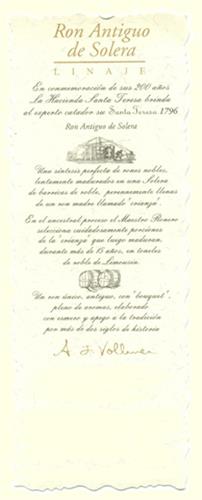 Ron Antiguo
de Solera
LINAJE
En conmemoración de sus 200 años
La Hacienda Santa Teresa brinda
al experto catador su Santa Teresa 1796
Ron Antiguo de Solera
Una síntesis perfecta de rones nobles,
lentamente madurados en una Solera
de barricas de roble, perennemente llenas
de un ron madre llamado "crianza".
En el ancestral proceso el Maestro Ronero
selecciona cuidadosamente porciones
de la "crianza" que luego maduran,
durante más de 15 años, en toneles
de roble de Limousin.
Un ron único, antiguo, con "bouquet",
pleno de aromas, elaborado
con esmero y apego a la tradición
por más de dos siglos de historia
A J Vollmer